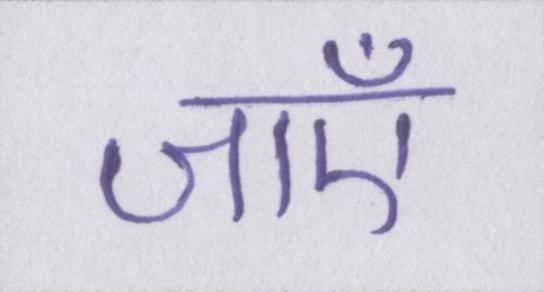 जाएँ